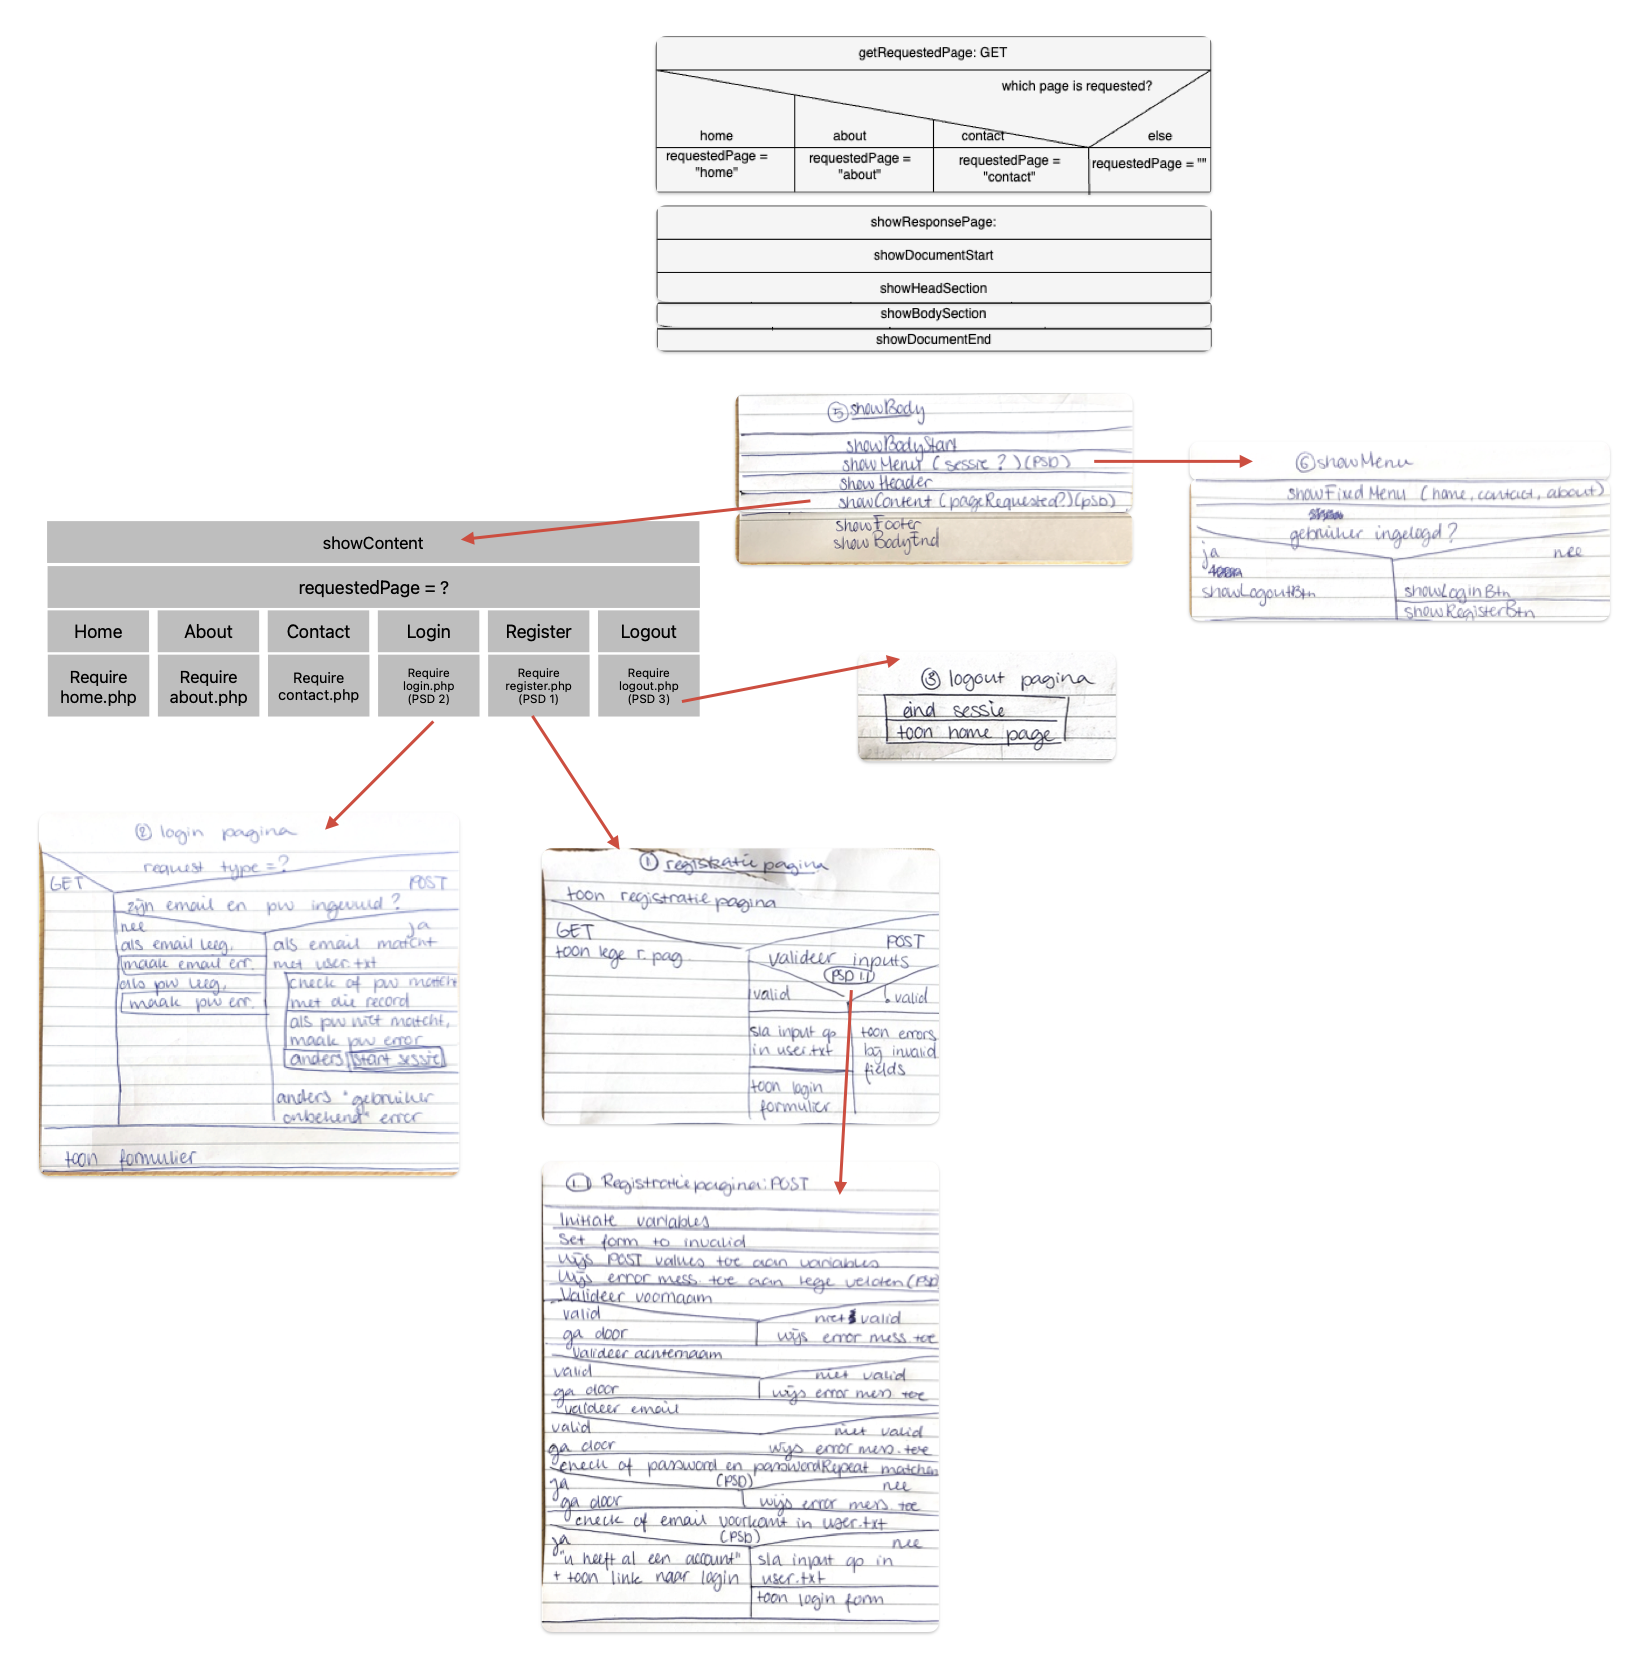 getRequestedPage: GET
which page is requested?
home
about
contact
else
requestedPage =
"home"
requestedPage =
"about"
requestedPage =
"contact"
requestedPage = ""
showResponsePage:
showDocumentStart
showHeadSection
showBodySection
showDocumentEnd
5 showBody
showBodyStart
showMenu (sessie?) (PSD)
showHeader
showContent (pageRequested?) (PSD)
showFooter
showBodyEnd
6 showMenu
showFixedMenu (home, contact, about)
gebruiker ingelogd?
ja
nee
showLogoutBtn
showLoginBtn
showRegisterBtn
showContent
requestedPage = ?
Home
About
Contact
Login
Register
Logout
Require
home.php
Require
about.php
Require
contact.php
Require
login.php
(PSD 2)
Require
register.php
(PSD 1)
Require
logout.php
(PSD 3)
3 logout pagina
eind sessie
toon home page
2 login pagina
request type = ?
GET
POST
zijn email en pw ingevuld?
nee
ja
als email leeg,
maak email err.
als pw leeg,
maak pw err.
als email matcht
met user.txt
check of pw matcht
met die record
als pw niet matcht,
maak pw error
anders start sessie
anders "gebruiker
onbekend" error
toon formulier
1 registratie pagina
toon registratie pagina
GET
POST
toon lege r. pag.
valideer inputs
PSD 1.1
valid
!valid
sla input op
in user.txt
toon login
formulier
toon errors
bij invalid
fields
1. Registratiepagina: POST
Initiate variables
Set form to invalid
Wijs POST values toe aan variables
Wijs error mess. toe aan lege velden (PSD
Valideer voornaam
valid
niet valid
ga door
wijs error mess. toe
Valideer achternaam
valid
niet valid
ga door
wijs error mess. toe
valideer email
valid
niet valid
ga door
wijs error mess. toe
check of password en passwordRepeat matchen
(PSD)
ja
nee
ga door
wijs error mess. toe
check of email voorkomt in user.txt
(PSD)
ja
nee
"u heeft al een account"
+ toon link naar login
sla input op in
user.txt
toon login form